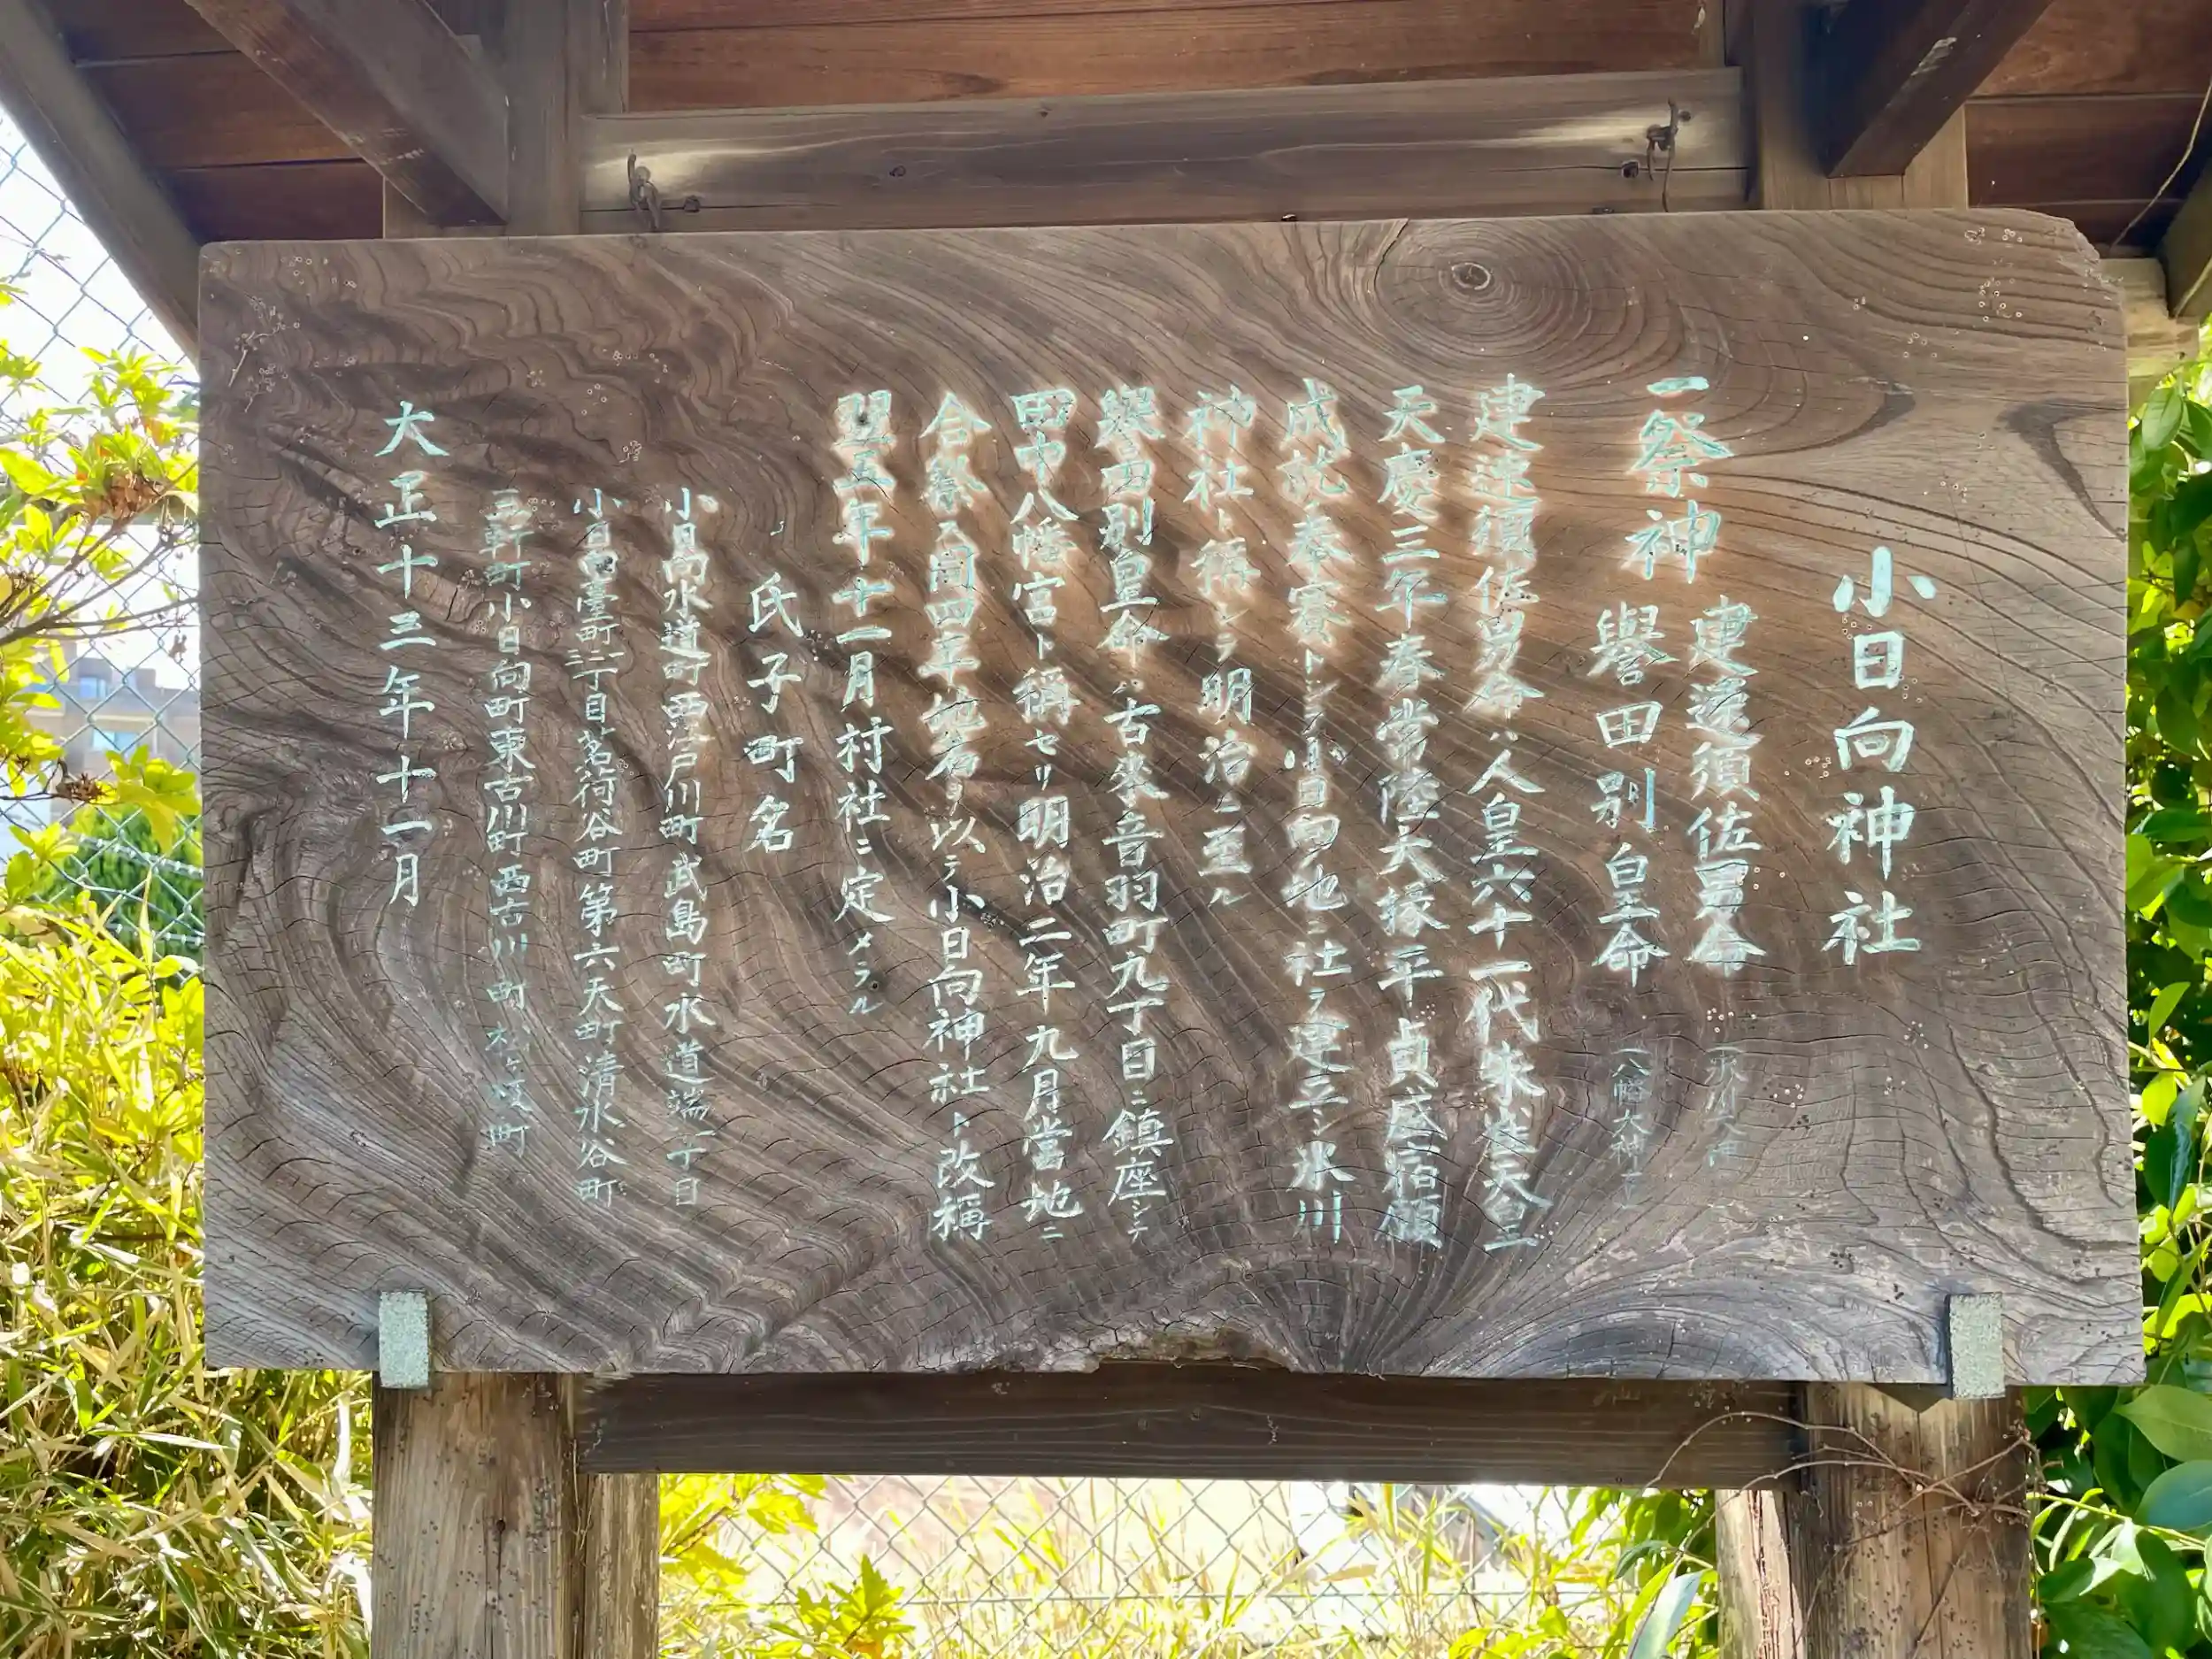 小日向神社
一祭神 建速須佐男命 (氷川大神)
譽田別皇命 (八幡大神)
建速須佐男命ハ人皇六十一代朱雀天皇
天慶三年春常陸大掾平貞盛宿願
成就奉賽トシテ小日向ノ地ニ社ヲ建立シ氷川
神社ト稱シテ明治ニ至ル
譽田別皇命ハ古來音羽町九丁目ニ鎮座シテ
田中八幡宮ト稱セリ明治二年九月當地ニ
合祭ス同四年地名ヲ以テ小日向神社ト改稱
翌五年十一月村社ニ定メラル
氏子町名
小日向水道町西江戸川町武島町水道端一二丁目
小日向臺町一二三丁目茗荷谷町第六天町清水谷町
三軒町小日向町東古川町西古川町松ヶ枝町
大正十三年十一月